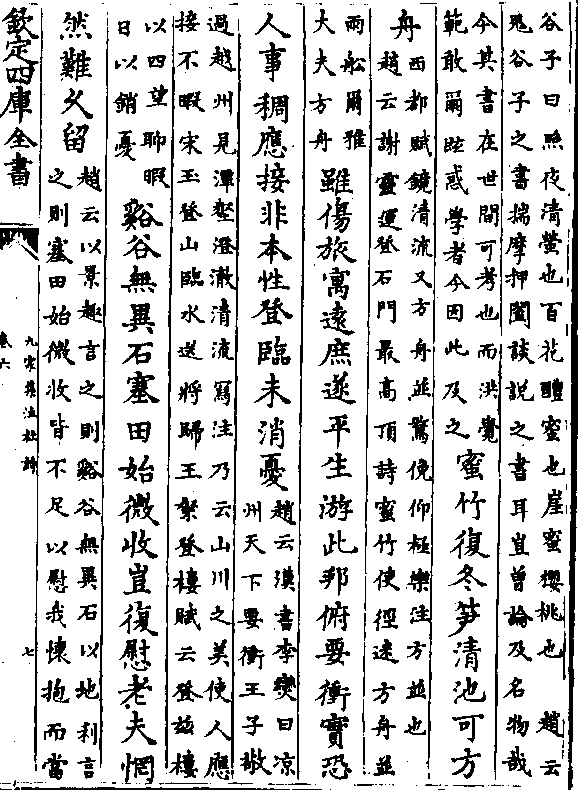 谷子曰照夜清螢也百花醴蜜也崖蜜櫻桃也　趙云
鬼谷子之書揣摩押闔談説之書耳豈曾論及名物哉
今其書在世間可考也而洪覺
範敢爾眩惑學者今因此及之
蜜竹復冬笋清池可方
舟
西都賦鏡清流又方舟並騖俛仰極樂注方並也
趙云謝靈運登石門最高頂詩蜜竹使徑迷方舟並
兩船爾雅
大夫方舟
雖傷旅寓遠庶遂平生游此邦俯要衝實恐
人事稠應接非本性登臨未消憂
趙云漢書李燮曰凉
州天下要衝王子敬
過越州見潭壑澄澈清流寫注乃云山川之美使人應
接不暇宋玉登山臨水送將歸王粲登樓賦云登兹樓
以四望聊暇
日以銷憂
谿谷無異石塞田始微收豈復慰老夫惘
然難久留
趙云以景趣言之則谿谷無異石以地利言
之則塞田始微收皆不足以慰我懷抱而當
欽定四庫全書
九家集注杜詩
卷六
七